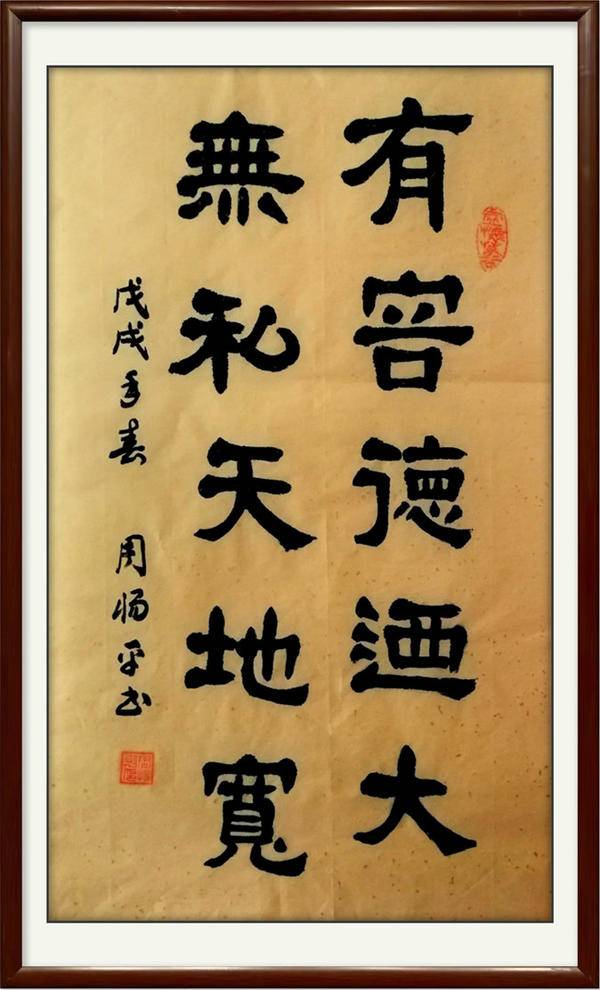 有容德迺大
無私天地寬
戊戌年春 周平书